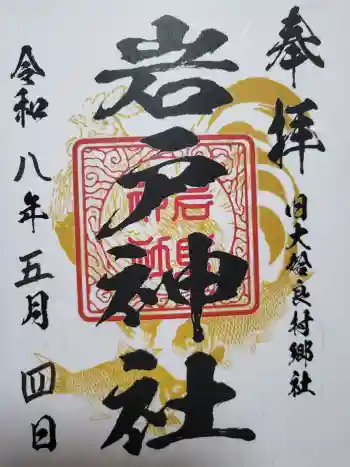 奉拝
旧大谷良村郷社
岩戸神社
令和八年五月四日
岩戸神社